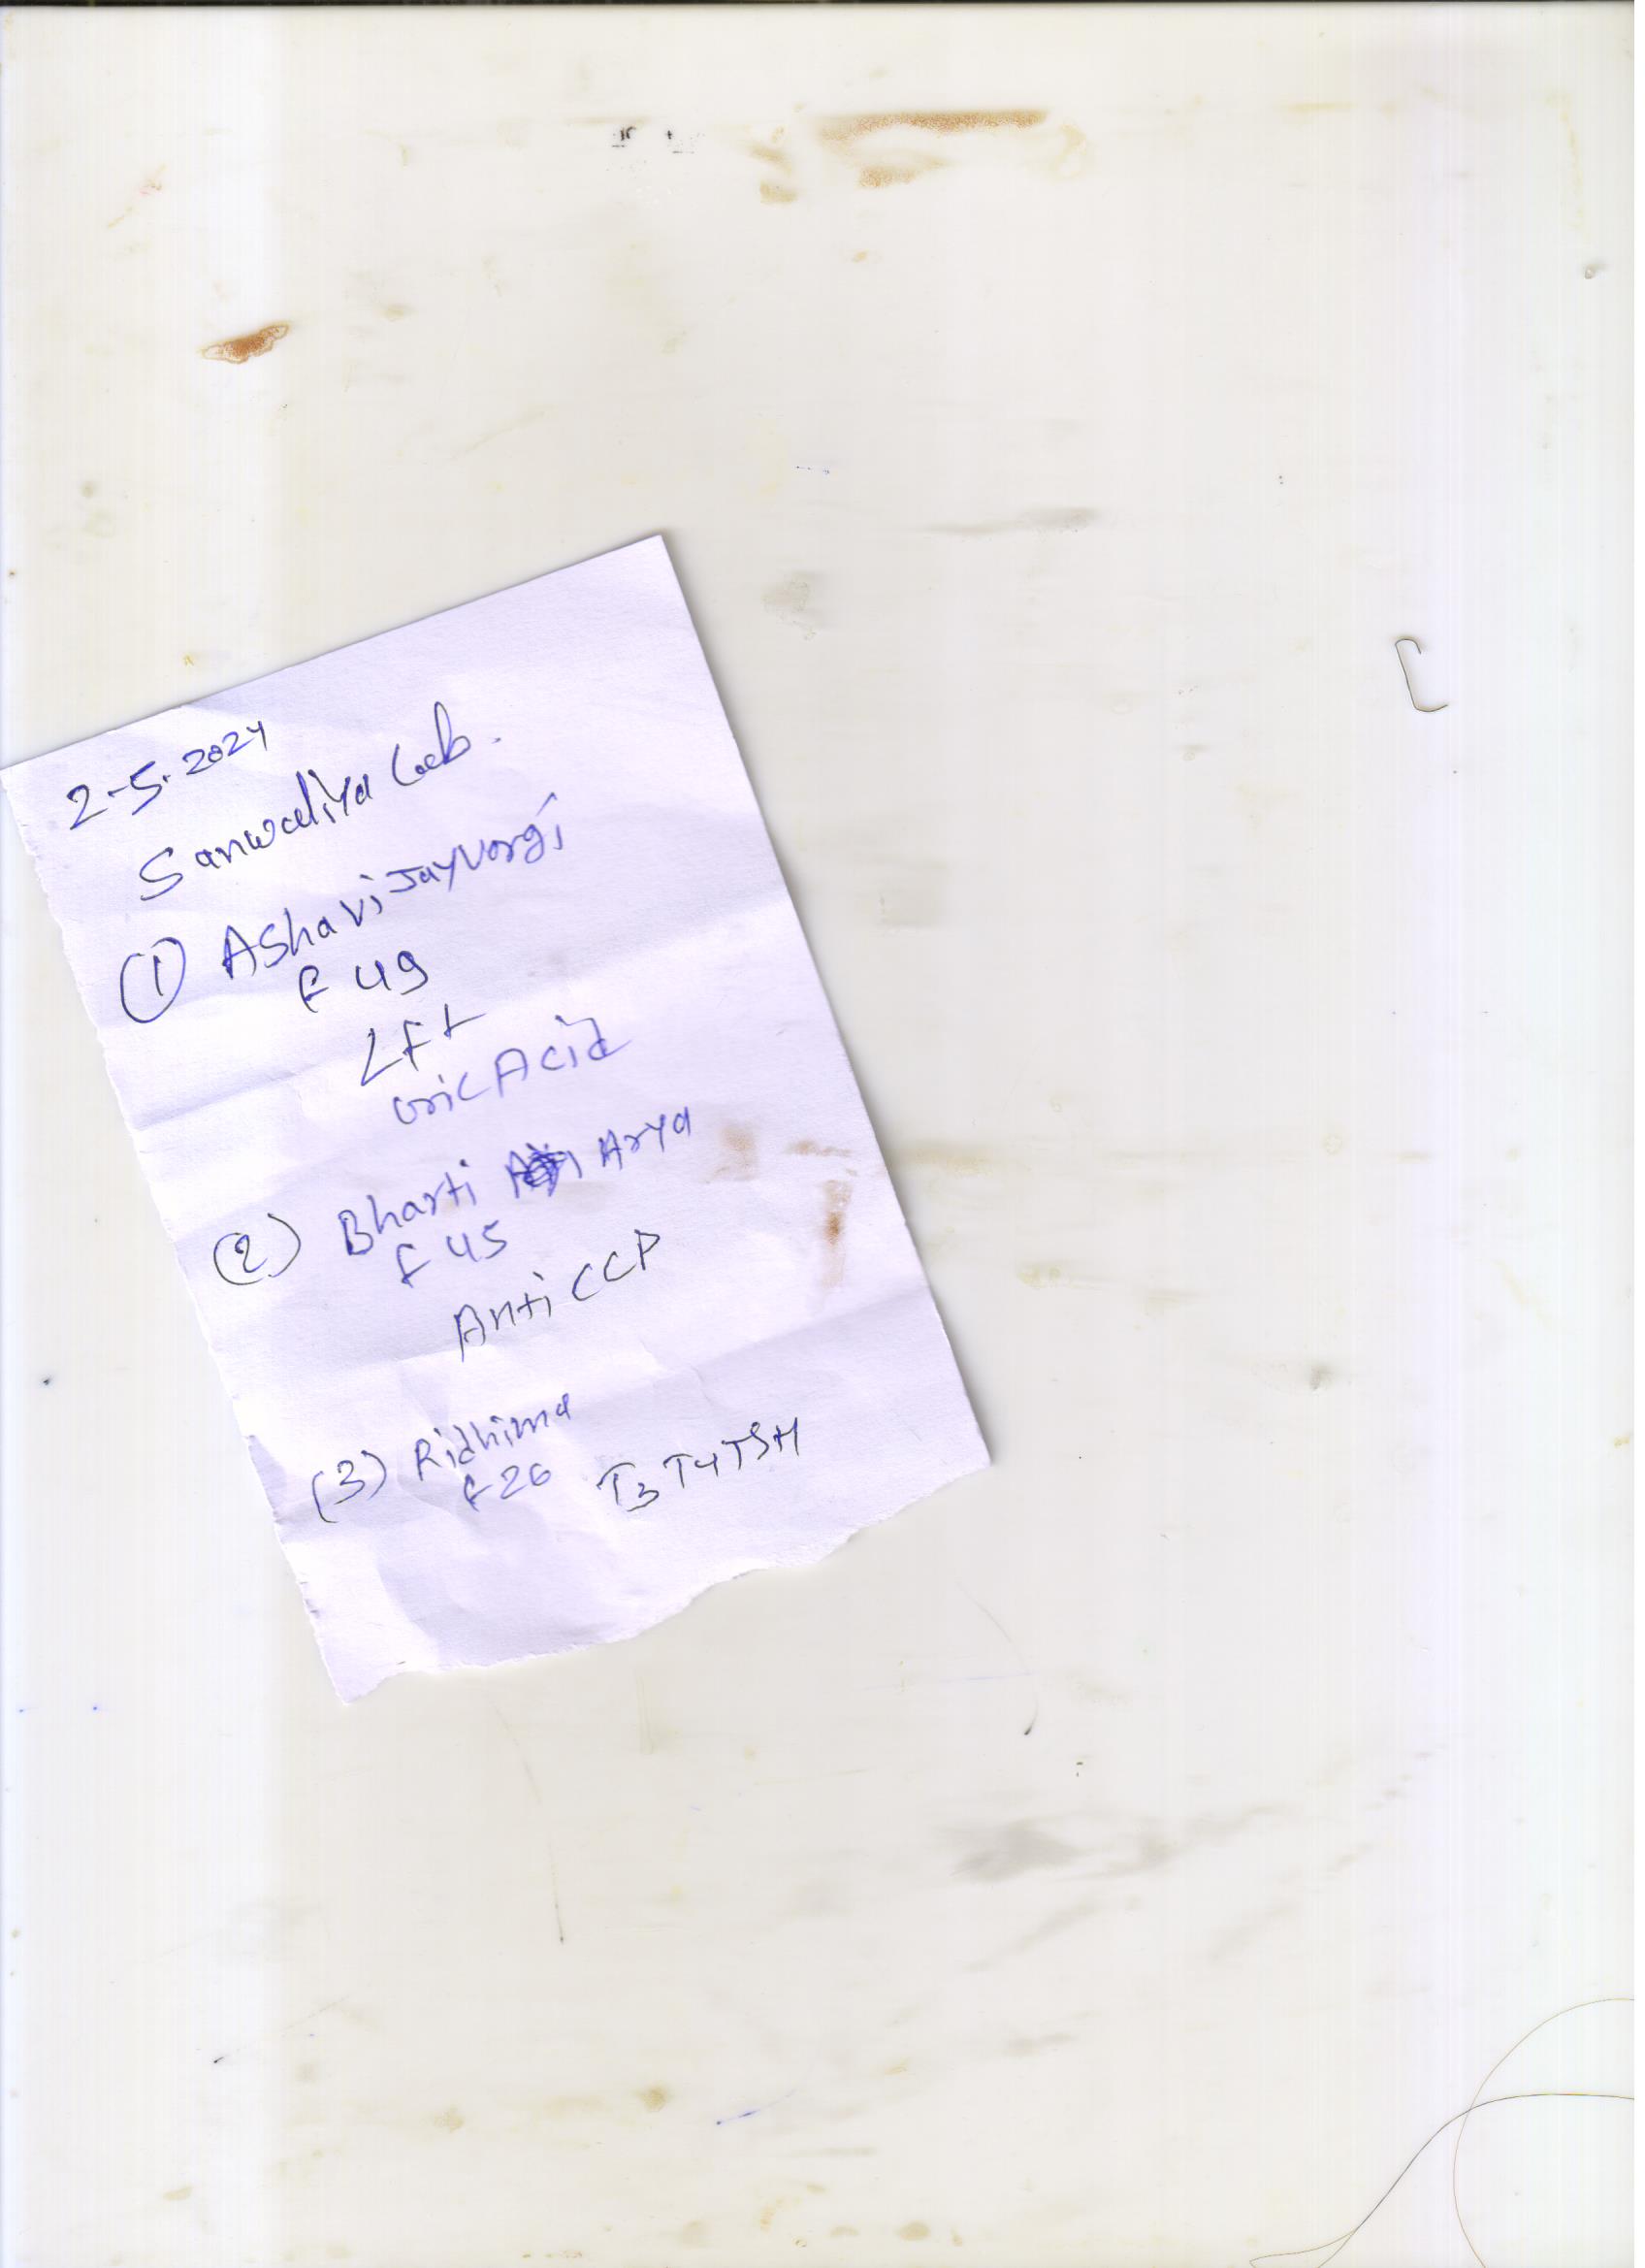 2-5-2024
Sanwaliya Lab.
(1) Asha vijayvorgi
F 49
LFt
uric Acid
(2) Bharti Arya
F 45
Anti CCP
(3) Ridhima
F 26 T3 T4 TSH